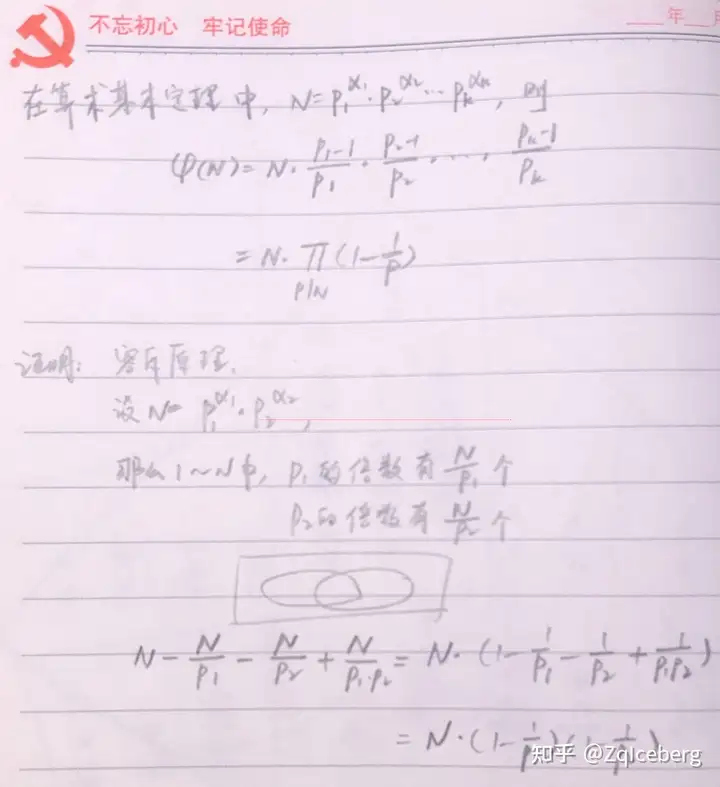 不忘初心 牢记使命
年 月
在算术基本定理中, N=p₁^α₁·p₂^α₂⋯pₖ^αₖ, 则
φ(N)=N·(p₁-1)/p₁·(p₂-1)/p₂·⋯·(pₖ-1)/pₖ
=N·∏_{p|N}(1-1/p)
证明: 容斥原理.
设 N=p₁^α₁·p₂^α₂,
那么1~N中, p₁的倍数有 N/p₁ 个
p₂的倍数有 N/p₂ 个
N-N/p₁-N/p₂+N/(p₁·p₂)=N·(1-1/p₁-1/p₂+1/(p₁p₂))
=N·(1-1/p
知乎 @ZqIceberg